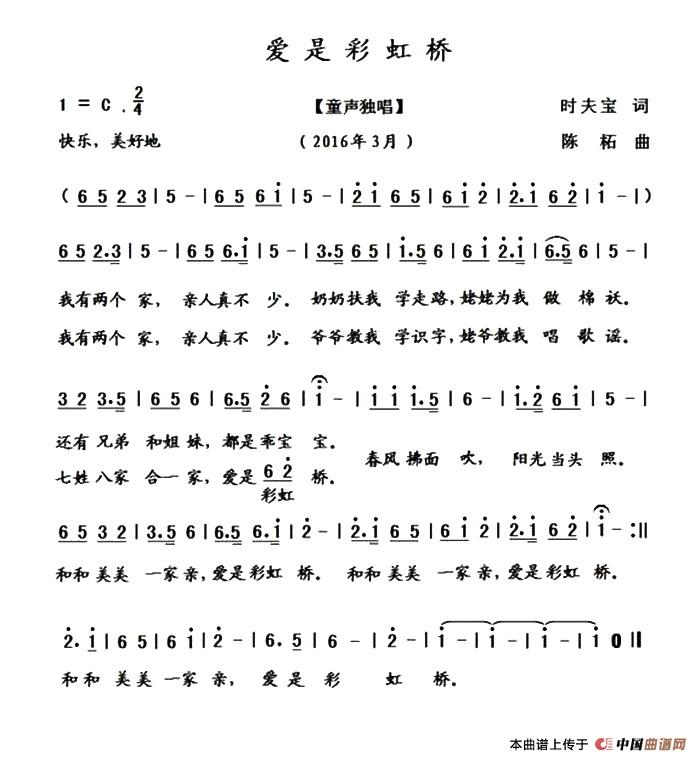 爱是彩虹桥
1 = C . 2/4 【童声独唱】 时夫宝 词
快乐，美好地 （2016年3月） 陈 柘 曲
( 6 5 2 3 | 5 - | 6 5 6 i | 5 - | 2̇ i 6 5 | 6 i 2̇ | 2̇. i 6 2̇ | i - | )
6 5 2.3 | 5 - | 6 5 6.i | 5 - | 3.5 6 5 | i.5 6 | 6 i 2̇.i | 6.5 6 | 5 - |
我有两个 家， 亲人真不 少。 奶奶扶我 学走路,姥姥为我 做 棉 袄。
我有两个 家， 亲人真不 少。 爷爷教我 学识字,姥爷教我 唱 歌 谣。
3 2 3.5 | 6 5 6 | 6.5 2̇ 6 | i - | i i i.5 | 6 - | i 6 i 2 | 5 - |
还有 兄弟 和姐 妹，都是乖宝 宝。
春风 拂面 吹， 阳光当头 照。
七姓八家 合一 家，爱是 6 2̇ 桥。
彩虹
6 5 3 2 | 3.5 6 | 6.5 6.i | 2̇ - | 2̇.i 6 5 | 6 i 2̇ | 2̇.i 6 2̇ | i - :||
和和 美美 一家 亲,爱是彩虹 桥。 和和 美美 一家 亲,爱是彩虹 桥。
2̇. i | 6 5 | 6 i | 2̇ - | 6. 5 | 6 - | 2̇ - | i - | i - | i - | i 0 ||
和 和 美 美 一 家 亲， 爱 是 彩 虹 桥。
本曲谱上传于 中国曲谱网